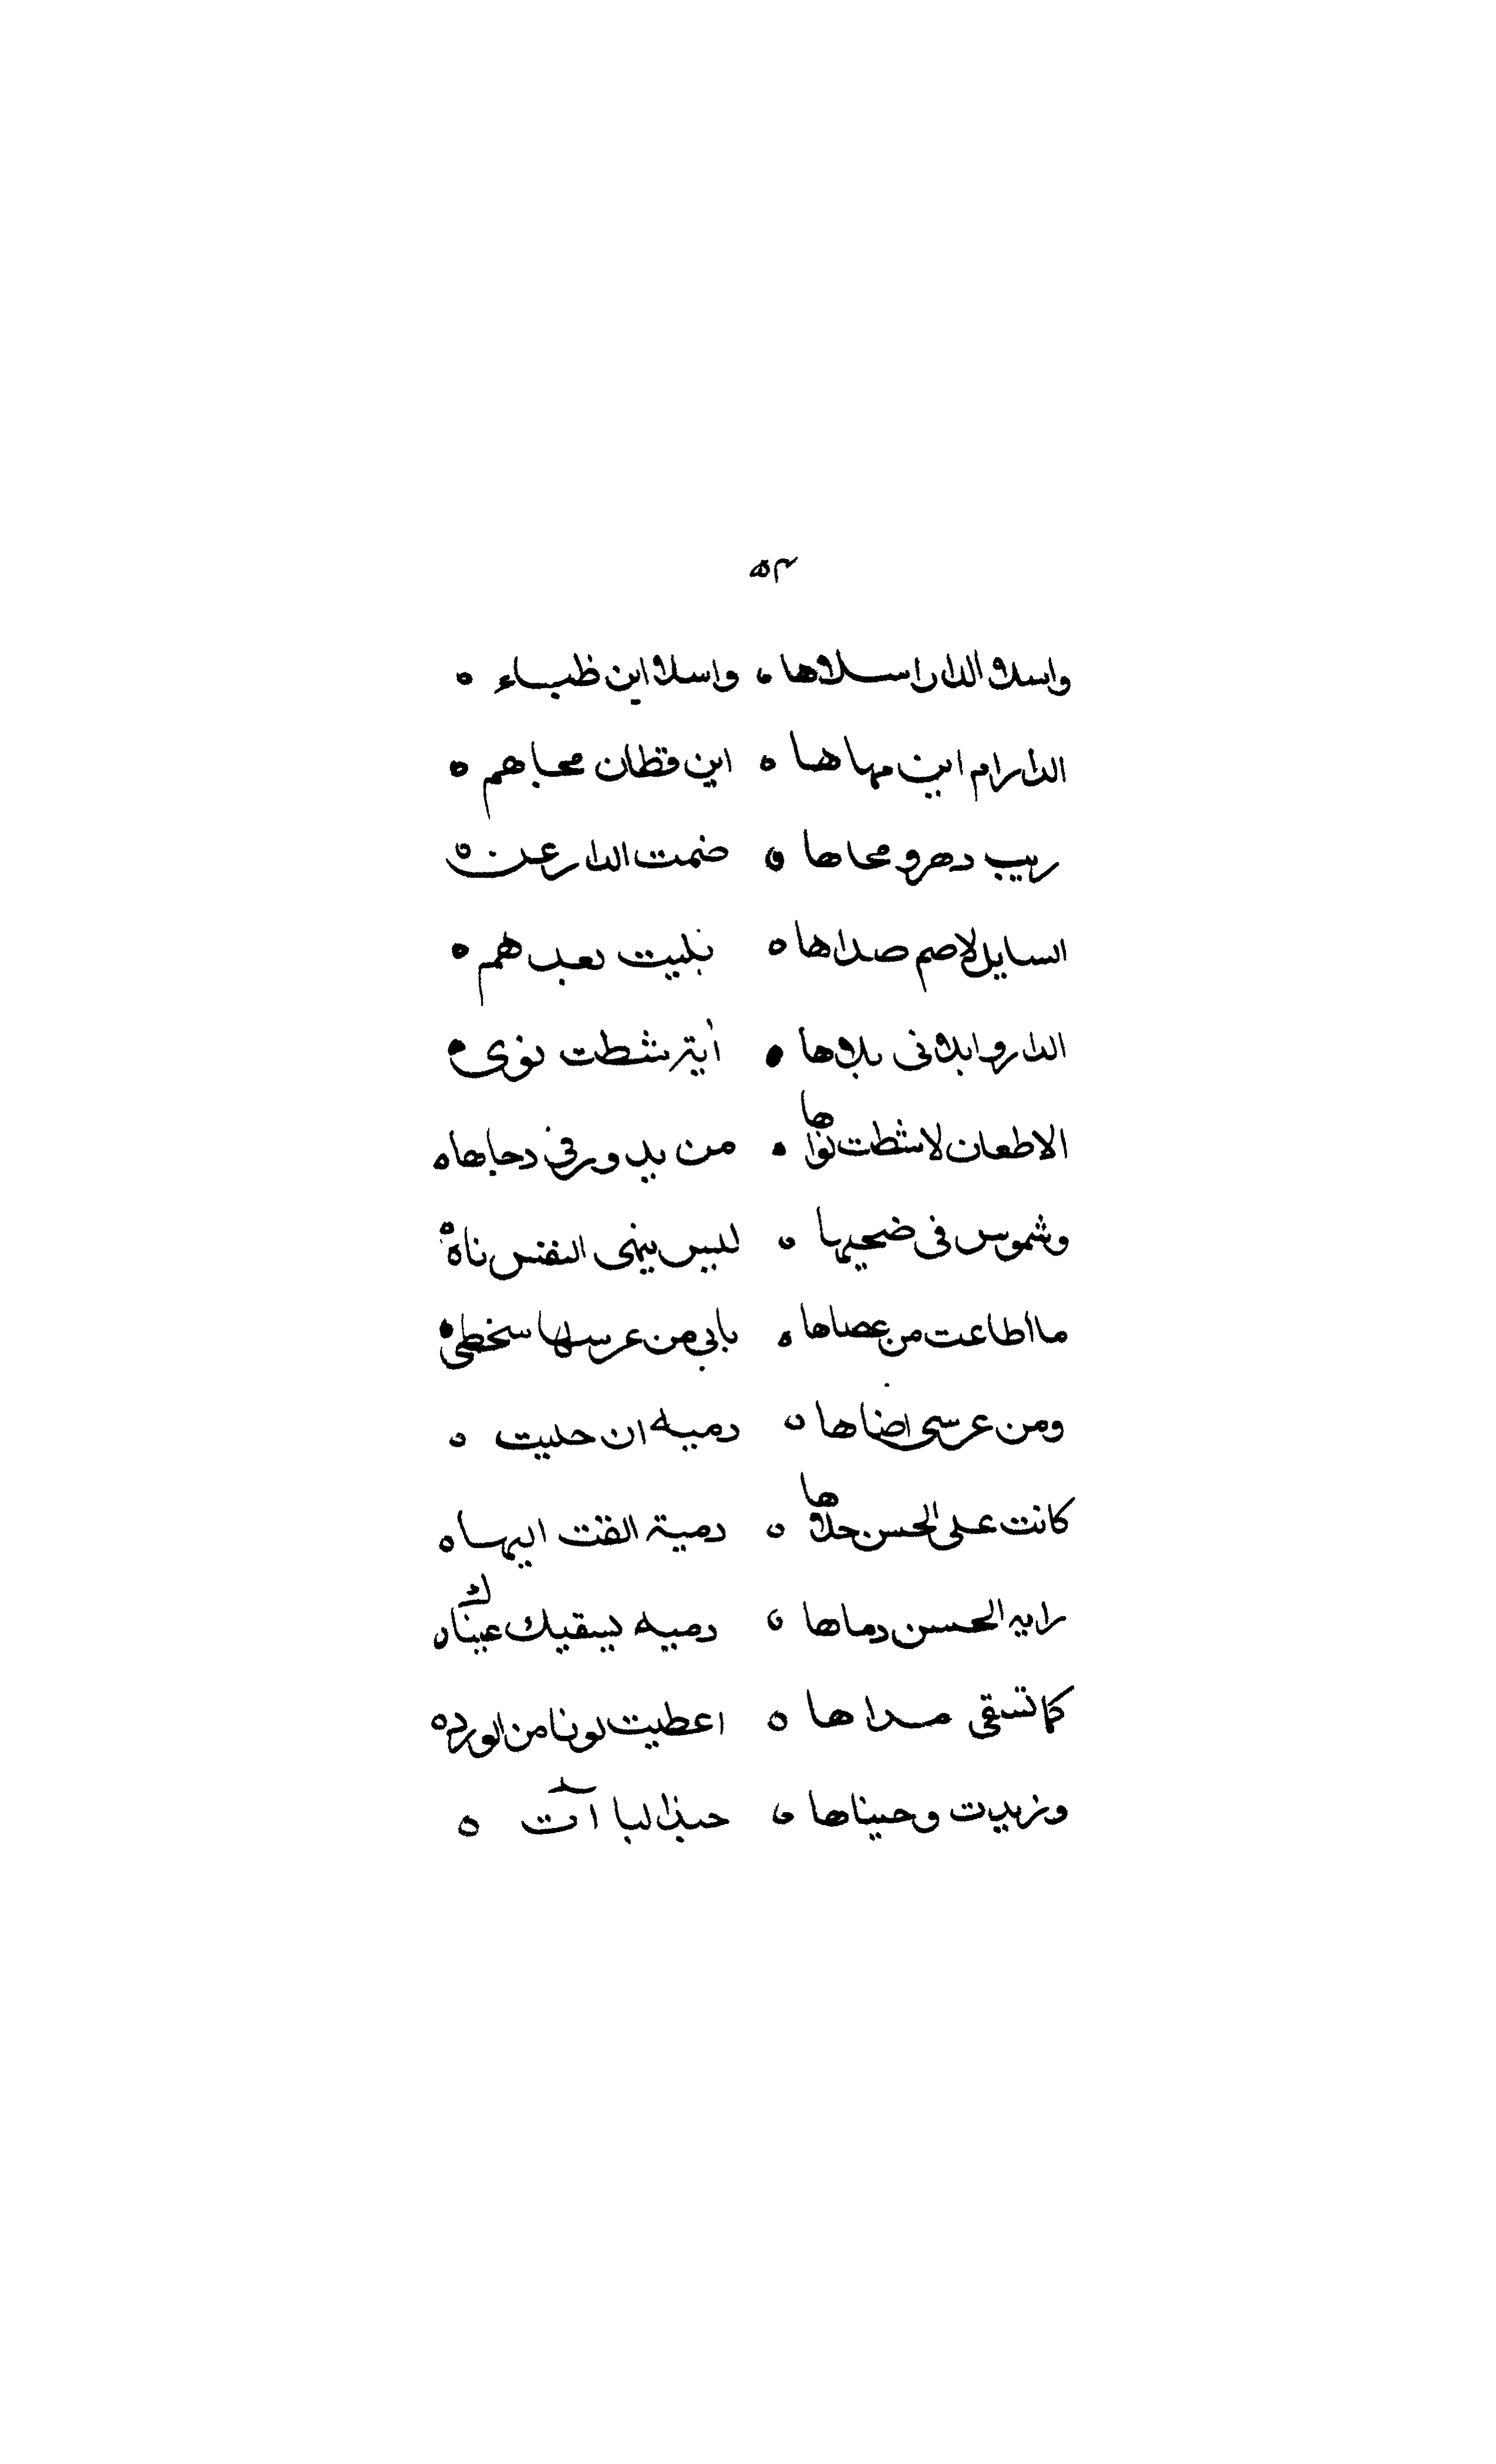 ٥٣
واسلا الدار اسلاها ه واسلا اين ظباء ه
الدار ام اين مهاها ه اين قطان محاهم ه
ريب دهر ومحاها ه ضمت الدار عن ه
السايل لا صم صداها ه بليت بعدهم ه
الدار وابلانى بلاها ه اية شطت نوى ه
الاظعان لا شطت نواها ه من بدور فى دجاها ه
وشموس فى ضحيها ه ليس ينهى النفس ناه ه
ما اطاعت من عصاها ه بابي من عرسها سخطى ه
ومن عرسى رضاها ه دميه ان حليت ه
كانت على الحسن حلاها ه دمية القت اليها ه
رايه الحسن دماها ه دميه يسقيك عيناك ه
كما تسقى مداها ه اعطيت لونا من الورد ه
وزيدت وجيناها ه حبذا لبا آت ه